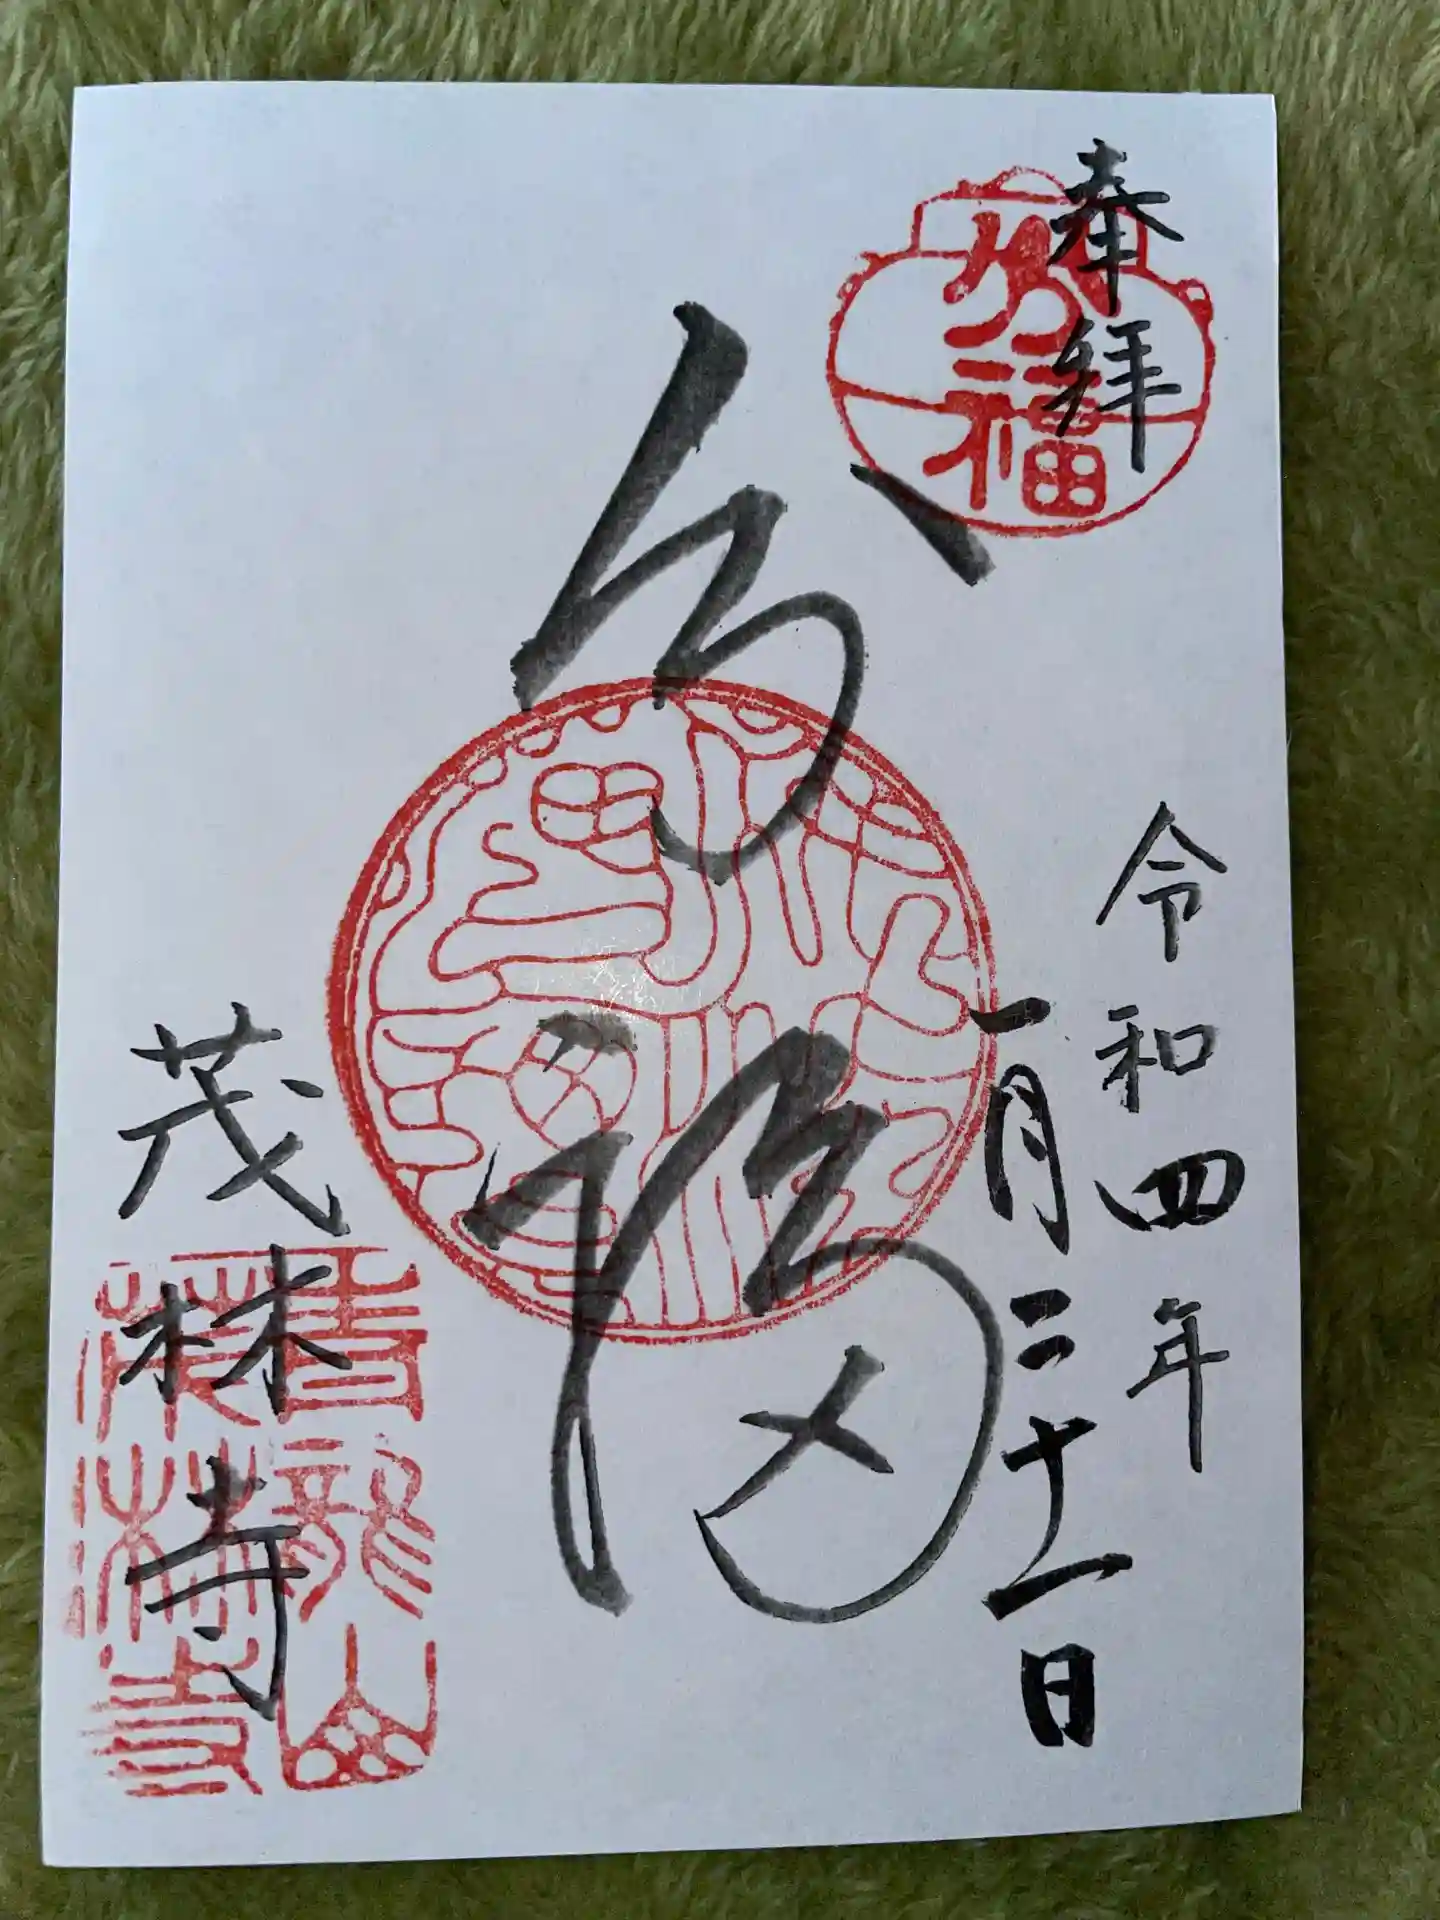 奉拝
分福
令和四年
一月三十一日
分福
茂林寺
青龍山
茂林寺